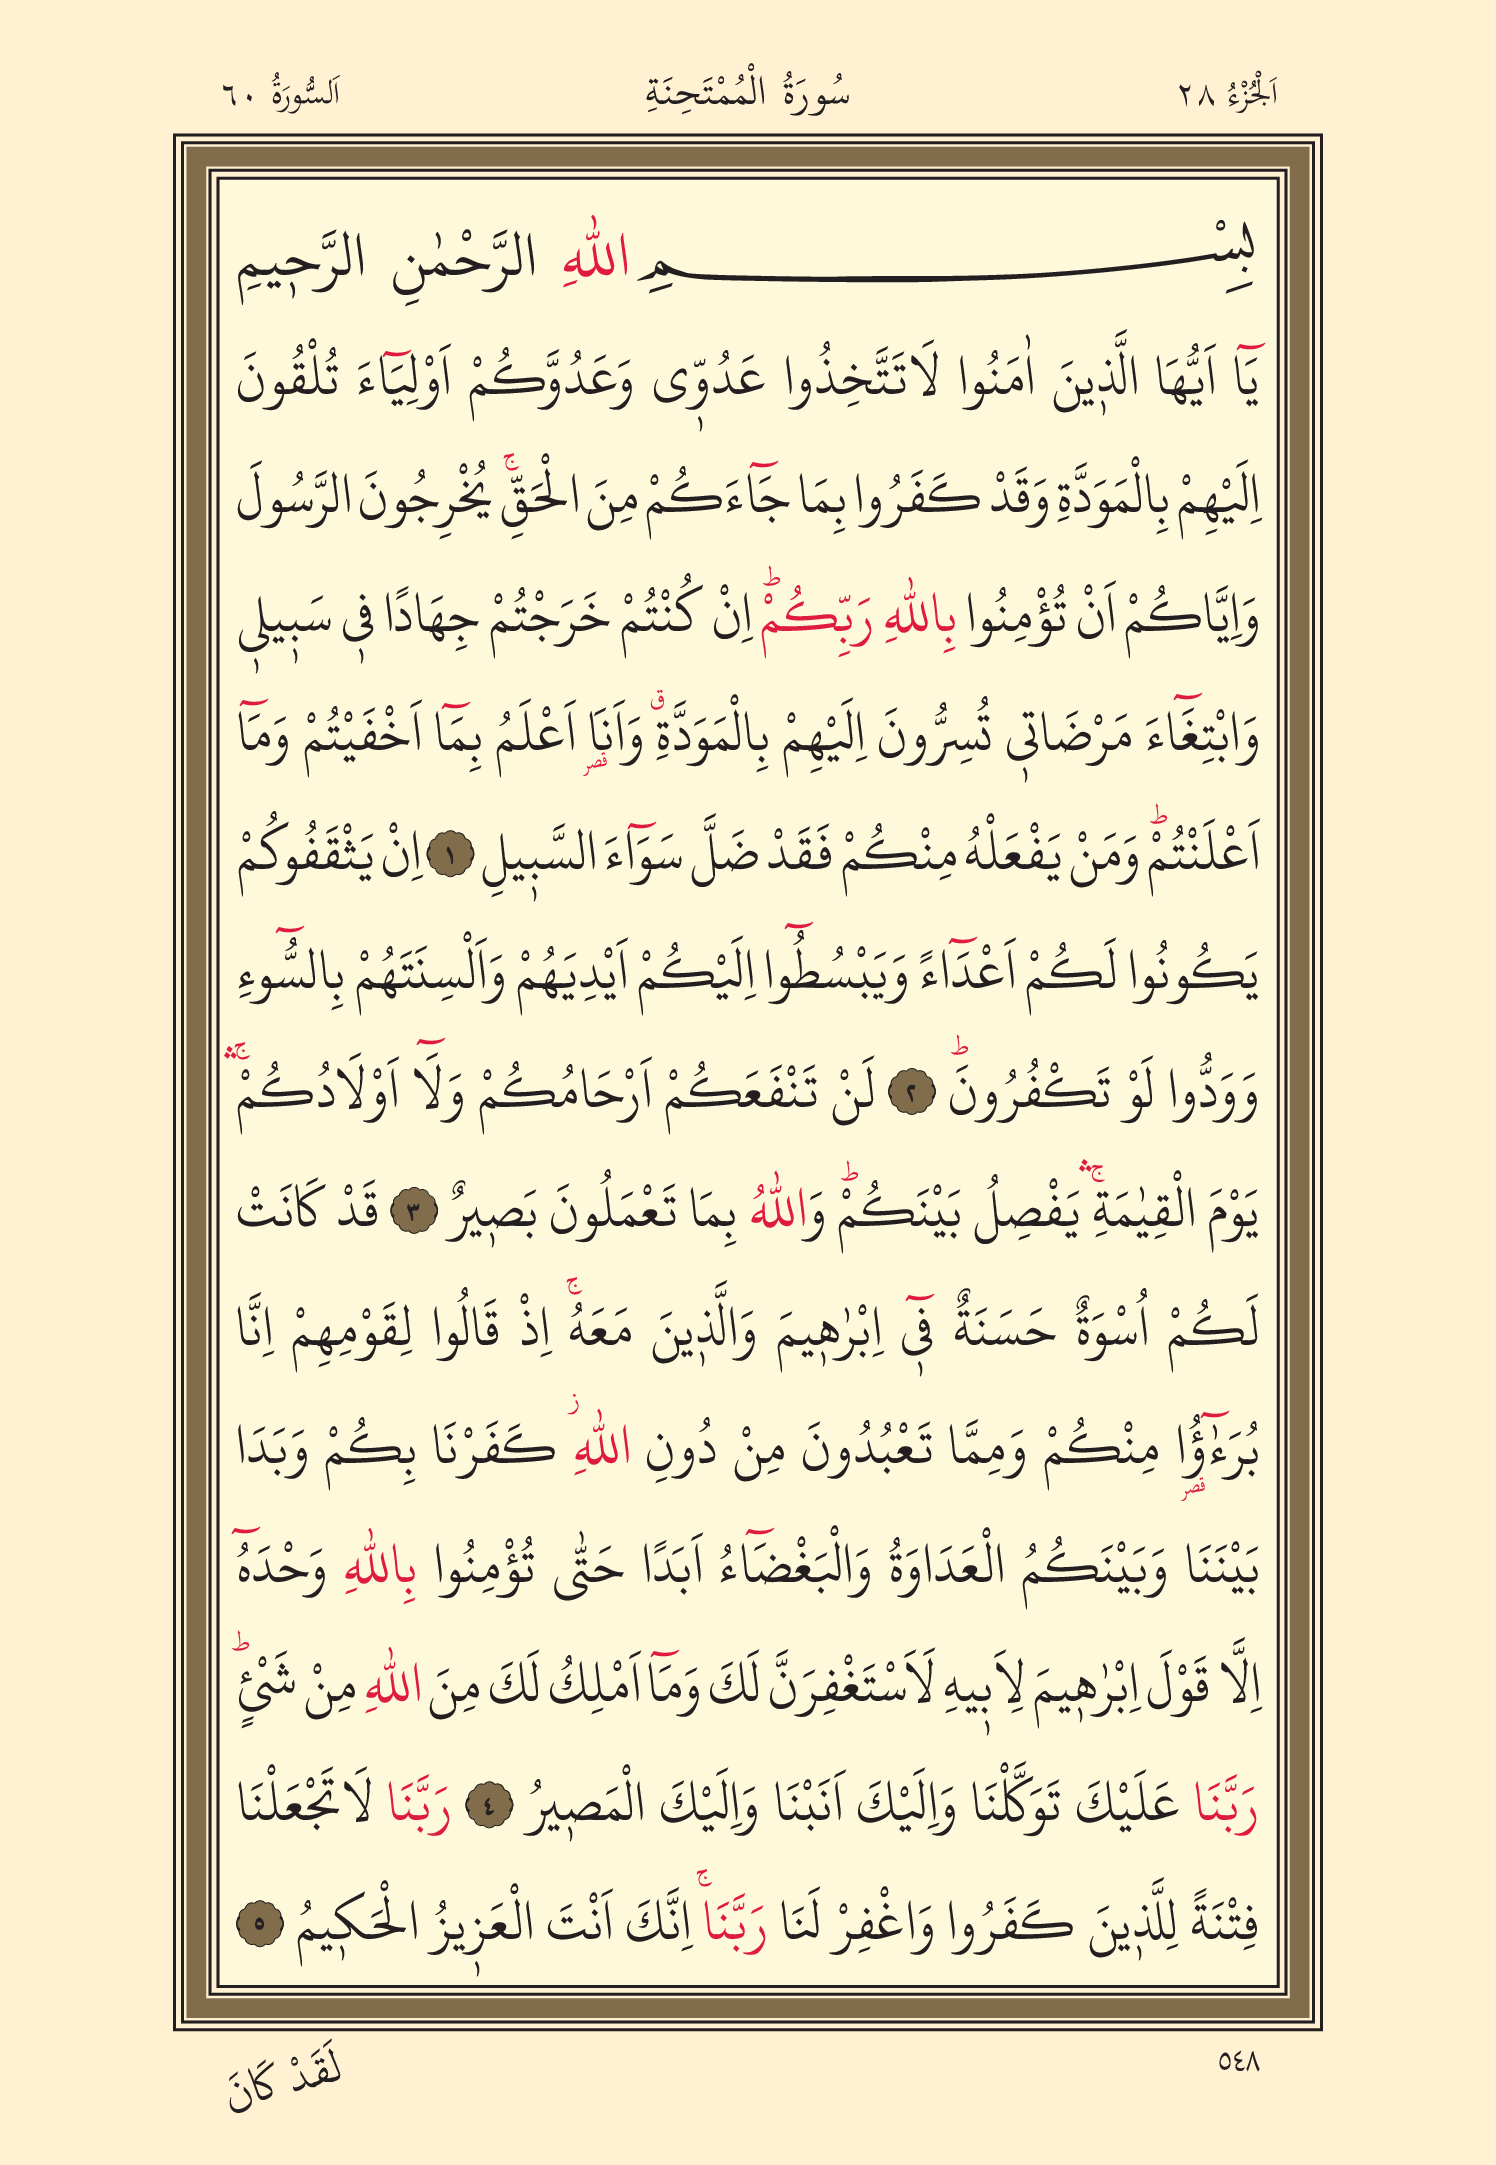 اَلْجُزْءُ ٢٨ سُورَةُ الْمُمْتَحِنَةِ اَلسُّورَةُ ٦٠
بِسْمِ اللّٰهِ الرَّحْمٰنِ الرَّح۪يمِ
يَٓا اَيُّهَا الَّذ۪ينَ اٰمَنُوا لَا تَتَّخِذُوا عَدُوّ۪ى وَعَدُوَّكُمْ اَوْلِيَٓاءَ تُلْقُونَ
اِلَيْهِمْ بِالْمَوَدَّةِ وَقَدْ كَفَرُوا بِمَا جَٓاءَكُمْ مِنَ الْحَقِّۚ يُخْرِجُونَ الرَّسُولَ
وَاِيَّاكُمْ اَنْ تُؤْمِنُوا بِاللّٰهِ رَبِّكُمْۜ اِنْ كُنْتُمْ خَرَجْتُمْ جِهَادًا ف۪ى سَب۪يل۪ى
وَابْتِغَٓاءَ مَرْضَات۪ى تُسِرُّونَ اِلَيْهِمْ بِالْمَوَدَّةِۗ وَاَنَا۬ اَعْلَمُ بِمَٓا اَخْفَيْتُمْ وَمَٓا
اَعْلَنْتُمْۜ وَمَنْ يَفْعَلْهُ مِنْكُمْ فَقَدْ ضَلَّ سَوَٓاءَ السَّب۪يلِ ١ اِنْ يَثْقَفُوكُمْ
يَكُونُوا لَكُمْ اَعْدَٓاءً وَيَبْسُطُٓوا اِلَيْكُمْ اَيْدِيَهُمْ وَاَلْسِنَتَهُمْ بِالسُّٓوءِ
وَوَدُّوا لَوْ تَكْفُرُونَۜ ٢ لَنْ تَنْفَعَكُمْ اَرْحَامُكُمْ وَلَٓا اَوْلَادُكُمْۚۛ
يَوْمَ الْقِيٰمَةِۚۛ يَفْصِلُ بَيْنَكُمْۜ وَاللّٰهُ بِمَا تَعْمَلُونَ بَص۪يرٌ ٣ قَدْ كَانَتْ
لَكُمْ اُسْوَةٌ حَسَنَةٌ ف۪ٓى اِبْرٰه۪يمَ وَالَّذ۪ينَ مَعَهُۚ اِذْ قَالُوا لِقَوْمِهِمْ اِنَّا
بُرَءٰٓؤُ۬ا مِنْكُمْ وَمِمَّا تَعْبُدُونَ مِنْ دُونِ اللّٰهِۘ كَفَرْنَا بِكُمْ وَبَدَا
بَيْنَنَا وَبَيْنَكُمُ الْعَدَاوَةُ وَالْبَغْضَٓاءُ اَبَدًا حَتّٰى تُؤْمِنُوا بِاللّٰهِ وَحْدَهُٓ
اِلَّا قَوْلَ اِبْرٰه۪يمَ لِاَب۪يهِ لَاَسْتَغْفِرَنَّ لَكَ وَمَٓا اَمْلِكُ لَكَ مِنَ اللّٰهِ مِنْ شَىْءٍۜ
رَبَّنَا عَلَيْكَ تَوَكَّلْنَا وَاِلَيْكَ اَنَبْنَا وَاِلَيْكَ الْمَص۪يرُ ٤ رَبَّنَا لَا تَجْعَلْنَا
فِتْنَةً لِلَّذ۪ينَ كَفَرُوا وَاغْفِرْ لَنَا رَبَّنَاۚ اِنَّكَ اَنْتَ الْعَز۪يزُ الْحَك۪يمُ ٥
٥٤٨ لَقَدْ كَانَ